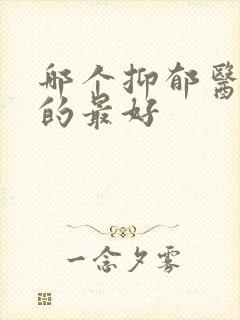 那个抑郁醫
的最好
一念夕雾